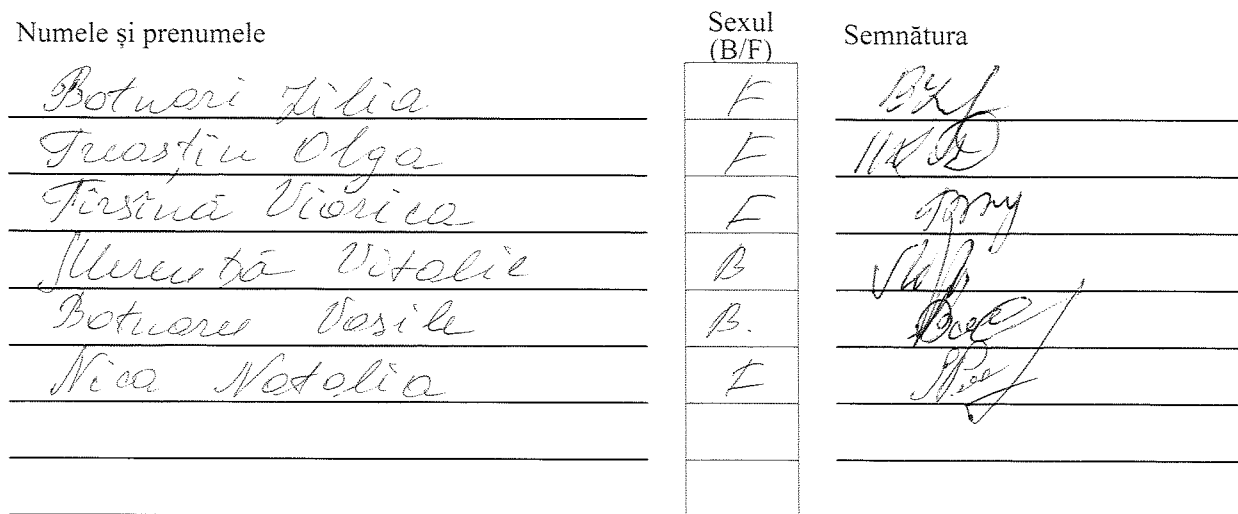 Numele și prenumele Sexul (B/F) Semnătura
Botnari Lilia F
Treaștin Olga F
Tîrsînă Viorica F
Vitalie B
Botnaru Vasile B.
Nica Natalia F